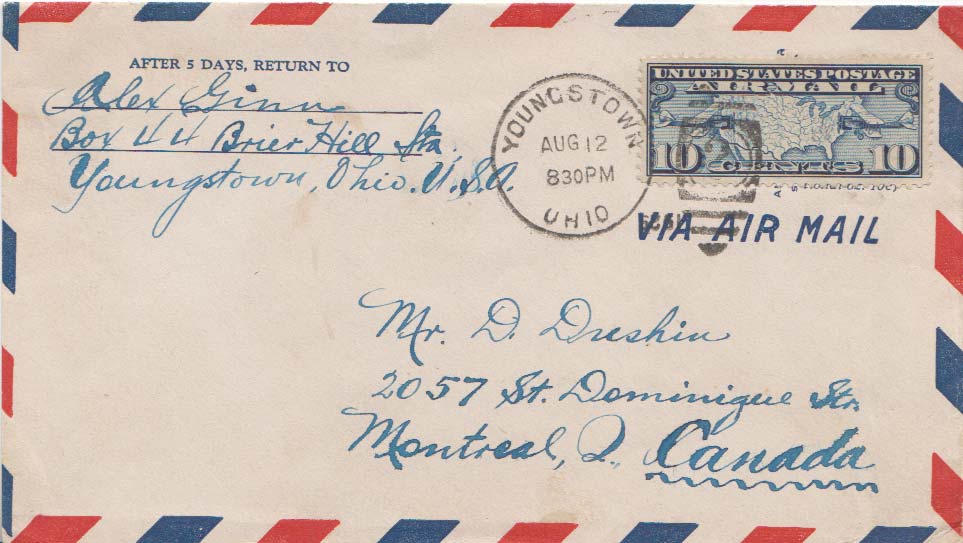 AFTER 5 DAYS, RETURN TO
Alex Ginn
Box 44 Brier Hill Sta.
Youngstown, Ohio. U.S.A.
YOUNGSTOWN
AUG 12
830PM
OHIO
UNITED STATES POSTAGE
AIR MAIL
10 CENTS 10
VIA AIR MAIL
Mr. D. Dreshin
2057 St. Dominique Str.
Montreal, Q., Canada